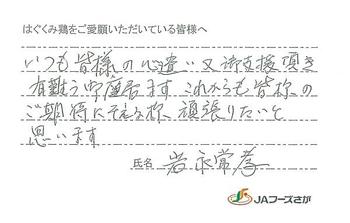 はぐくみ鶏をご愛顧いただいている皆様へ
いつも皆様の心遣い又御支援頂き
有難う御座居ます これからも皆様の
ご期待にそえる様 頑張りたいと
思います
氏名 岩永常孝
JAフーズさが